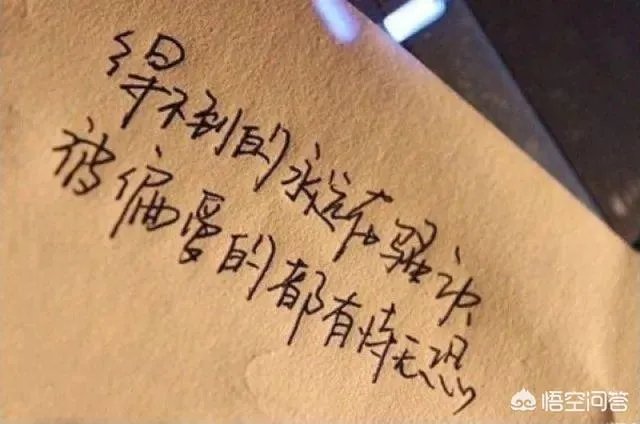 得不到的永远在骚动
被偏爱的都有恃无恐
悟空问答